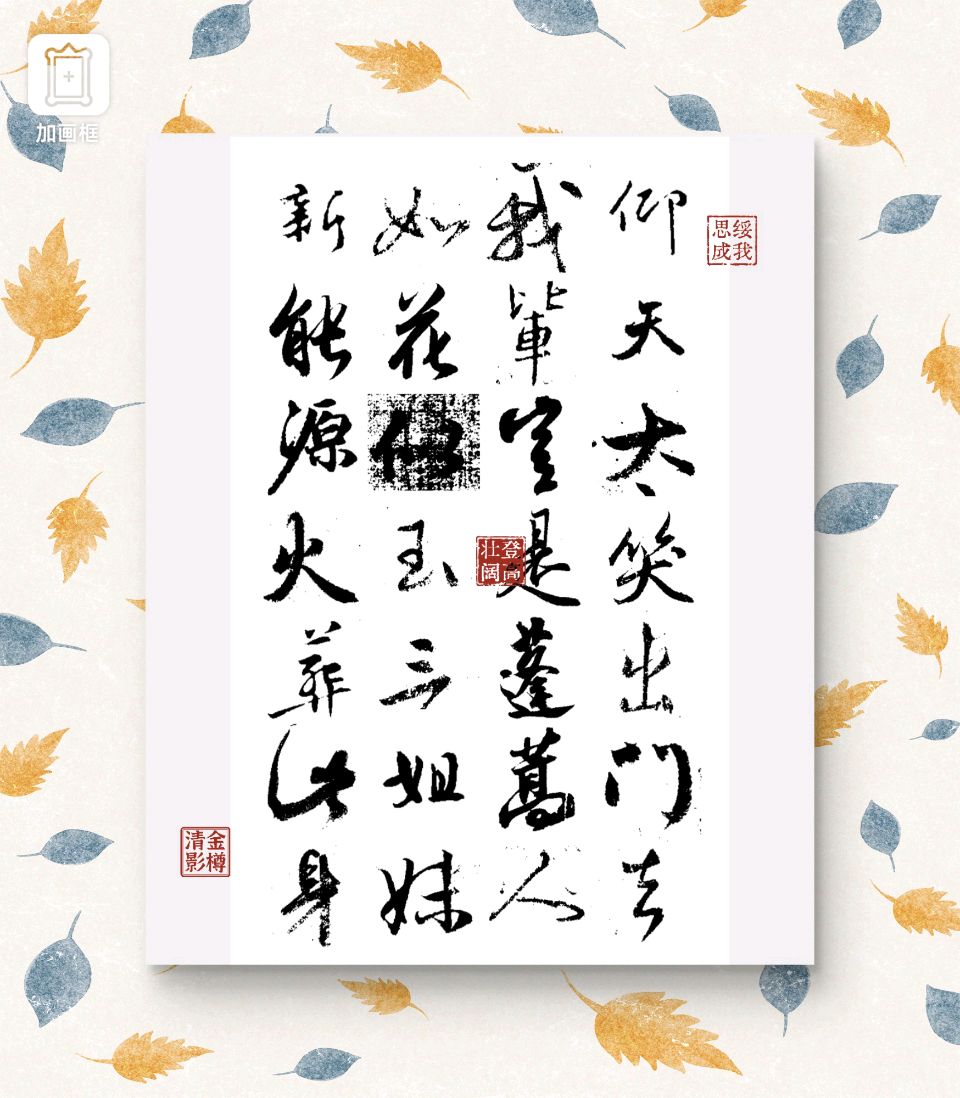 加画框
仰天大笑出门去
我輩豈是蓬蒿人
如花似玉三姐妹
新能源火葬此身
绥我思成
登高壮阔
金樽清影